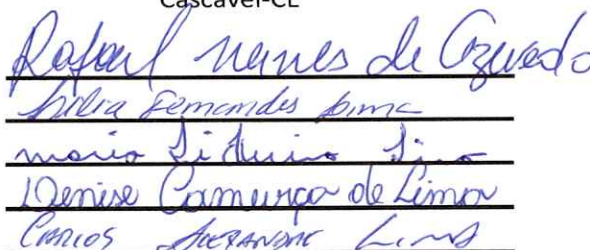 Cascavel-CE
Rafael nunes de Azevedo
Fernandes Lima
maria Lima
Denise Camurça de Lima
CARLOS ALEXANDRE LIMA